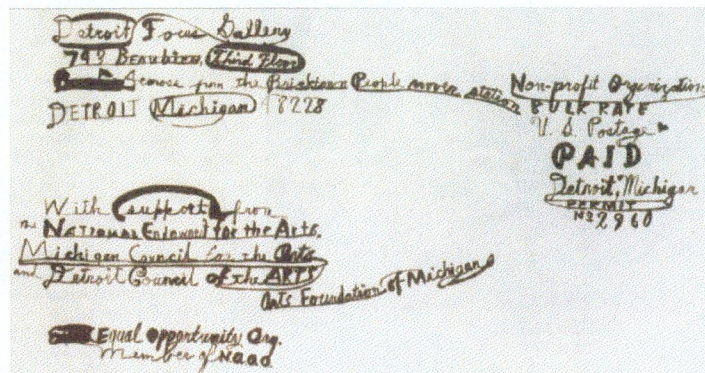 Detroit Focus Gallery
743 Beaubien, Third Floor
Across from the Bricktown People mover station
DETROIT Michigan 48228
Non-profit Organization
BULK RATE
U.S. Postage
PAID
Detroit, Michigan
PERMIT
No 2960
With support from
the National Endowment for the Arts,
Michigan Council for the Arts
and Detroit Council of the ARTS
Arts Foundation of Michigan
Equal opportunity Org.
Member of NAAO